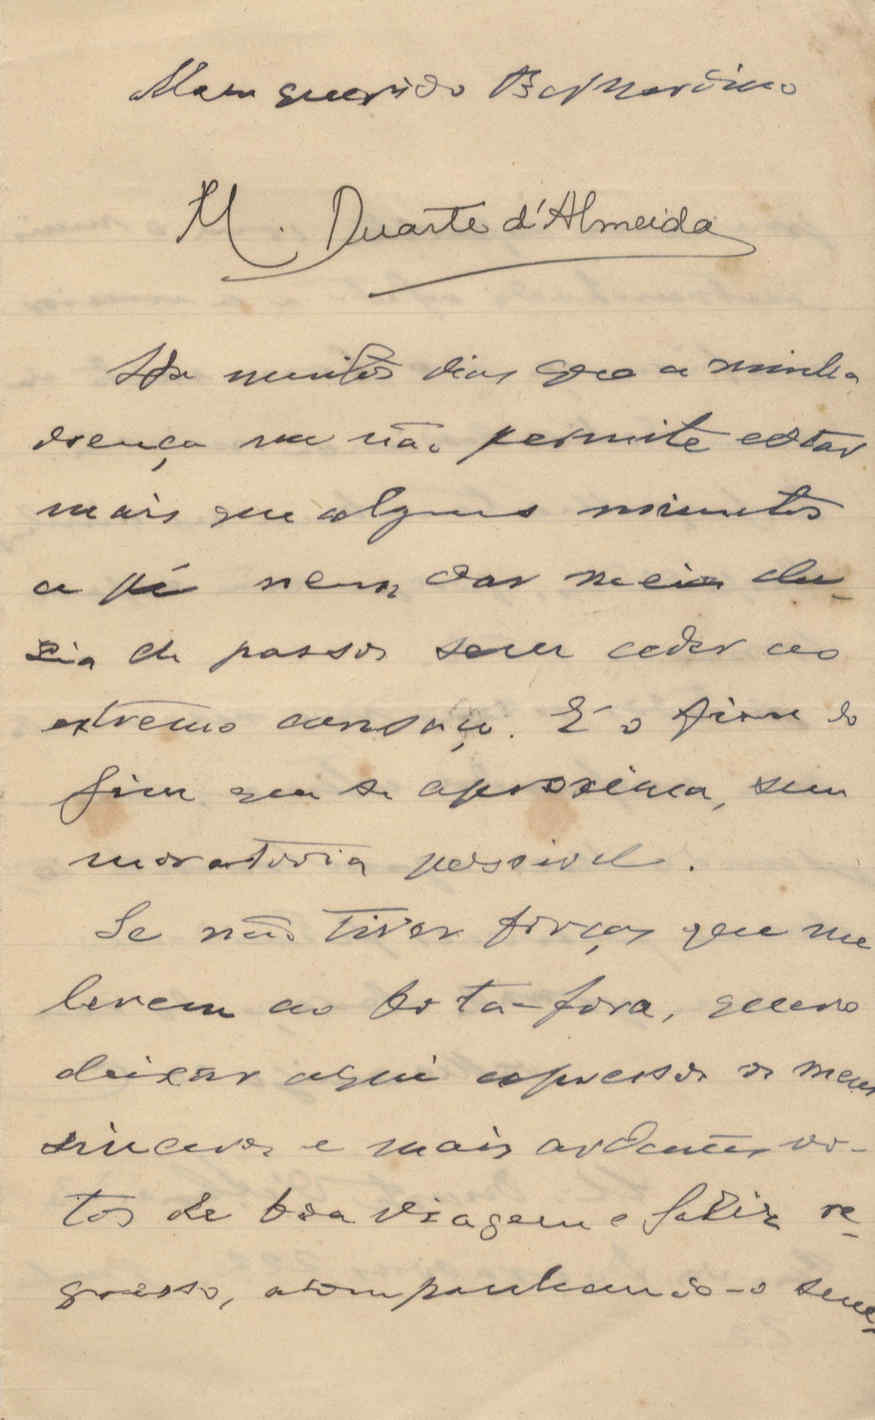 Meu querido Bernardino
M. Duarte d'Almeida
Ha muitos dias que a minha
doença me não permite estar
mais que alguns minutos
a pé nem dar meia du-
zia de passos sem ceder ao
extremo cansaço. É o fim do
fim que se aproxima, sem
moratoria possivel.
Se não tiver forças que me
levem ao bota-fora, quero
deixar aqui expressos os meus
sinceros e mais ardentes vo-
tos de boa viagem e feliz re-
gresso, acompanhando-o sem-